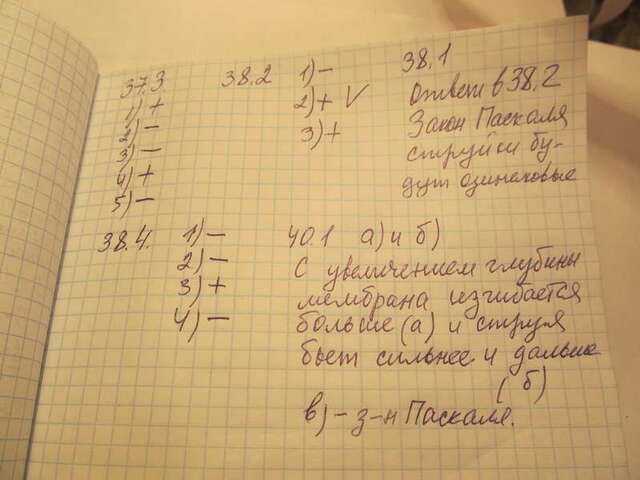 37.3
1) +
2) –
3) –
4) +
5) –
38.2
1) –
2) + V
3) +
38.1
Ответ в 38.2
Закон Паскаля
струйки бу-
дут одинаковые
38.4.
1) –
2) –
3) +
4) –
40.1 а) и б)
С увеличением глубины
мембрана изгибается
больше (а) и струя
бьет сильнее и дальше
(б)
в) – з-н Паскаля.